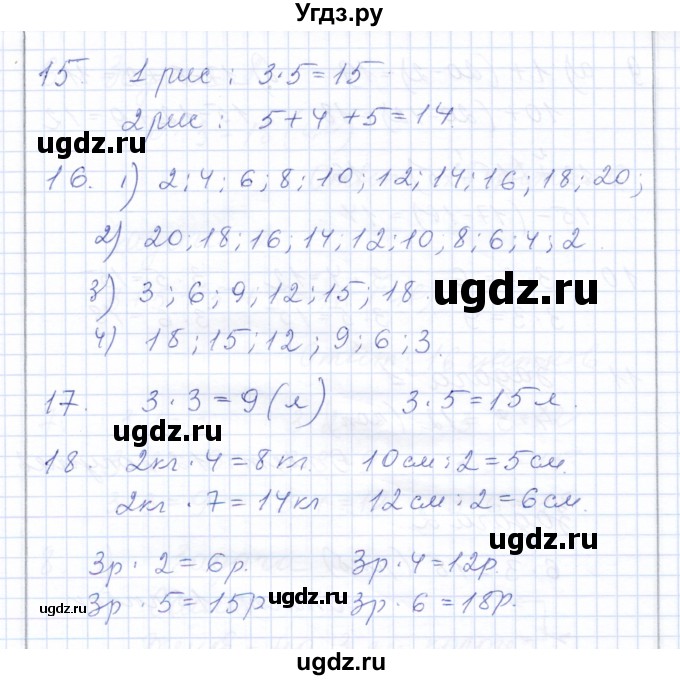 Угдз.ру
15 1 рис: 3·5=15
2 рис: 5+4+5=14
ugdz.ru
16. 1) 2; 4; 6; 8; 10; 12; 14; 16; 18; 20;
2) 20; 18; 16; 14; 12; 10; 8; 6; 4; 2.
3) 3; 6; 9; 12; 15; 18.
ugdz.ru
4) 18; 15; 12; 9; 6; 3.
17. 3·3=9(л) 3·5=15л.
ugdz.ru
18. 2кг·4=8кг. 10см:2=5см.
2кг·7=14кг 12см:2=6см.
ugdz.ru
3р·2=6р. 3р·4=12р.
3р·5=15р 3р·6=18р.
ugdz.ru
ugdz.ru
ugdz.ru